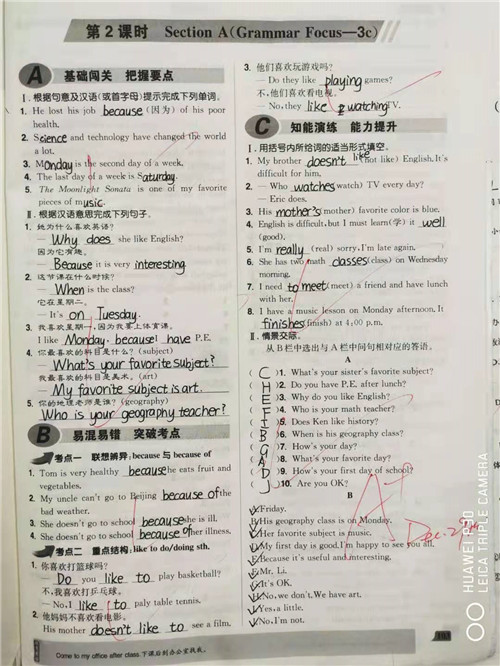 第2课时 Section A(Grammar Focus—3c)
A 基础闯关 把握要点
Ⅰ.根据句意及汉语(或首字母)提示完成下列单词。
1. He lost his job because (因为) of his poor
health.
2. Science and technology have changed the world
a lot.
3. Monday is the second day of a week.
4. The last day of a week is Saturday.
5. The Moonlight Sonata is one of my favorite
pieces of music.
Ⅱ.根据汉语意思完成下列句子。
1. 她为什么喜欢英语?
— Why does she like English?
因为它有趣。
— Because it is very interesting
2. 这节课在什么时候?
— When is the class?
它在星期二。
— It's on Tuesday.
3. 我喜欢星期一,因为我要上体育课。
I like Monday because I have P.E.
4. 你最喜欢的科目是什么? (subject)
— What's your favorite subject?
我最喜欢的科目是美术。(art)
— My favorite subject is art.
5. 你的地理老师是谁? (geography)
Who is your geography teacher?
B 易混易错 突破考点
考点一 联想辨异: because 与 because of
1. Tom is very healthy because he eats fruit and
vegetables.
2. My uncle can't go to Beijing because of the
bad weather.
3. She doesn't go to school because she is ill.
4. She doesn't go to school because of her illness.
考点二 重点结构: like to do/doing sth.
1. 你喜欢打篮球吗?
— Do you like to play basketball?
不,我喜欢打乒乓球。
— No, I like to paly table tennis.
2. 他妈妈不喜欢看电影。
His mother doesn't like to see a film.
Come to my office after class.下课后到办公室找我。
3. 他们喜欢玩游戏吗?
— Do they like playing games?
不,他们喜欢看电视。
— No, they like watching TV.
C 知能演练 能力提升
Ⅰ.用括号内所给词的适当形式填空。
1. My brother doesn't like (not like) English. It's
difficult for him.
2. — Who watches (watch) TV every day?
— Eric does.
3. His mother's (mother) favorite color is blue.
4. English is difficult, but I must learn(学) it well
(good).
5. I'm really (real) sorry, I'm late again.
6. She has two math classes (class) on Wednesday
morning.
7. I need to meet (meet) a friend and have lunch
with her.
8. I have a music lesson on Monday afternoon. It
finishes (finish) at 4:00 p.m.
Ⅱ.情景交际。
从B栏中选出与A栏中问句相对应的答语。
A
( C )1. What's your sister's favorite subject?
( H )2. Do you have P.E. after lunch?
( E )3. Why do you like English?
( F )4. Who is your math teacher?
( I )5. Does Ken like history?
( B )6. When is his geography class?
( G )7. How's your day?
( A )8. What's your favorite day?
( D )9. How's your first day of school?
( J )10. Are you OK?
B
A. Friday.
B. His geography class is on Monday.
C. Her favorite subject is music.
D. My first day is good. I'm happy to see you all.
E. Because it's useful and interesting.
F. Mr. Li.
G. It's OK.
H. No, we don't. We have art.
I. Yes, a little.
J. No, I'm not.
A+
103
HUAWEI P30 PRO
LEICA TRIPLE CAMERA